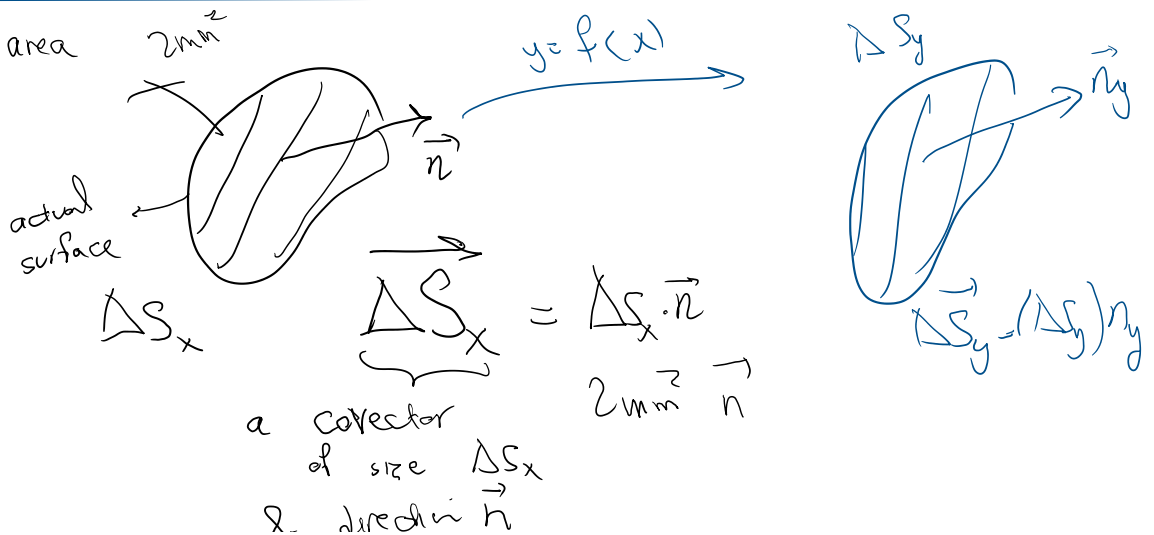 area 2mm²
y=f(x)
ΔSy
n⃗y
n⃗
actual
surface
ΔSx
ΔS⃗x = ΔSx.n⃗
2mm² n⃗
ΔS⃗y=(ΔSy)ny
a covector
of size ΔSx
& direction n⃗